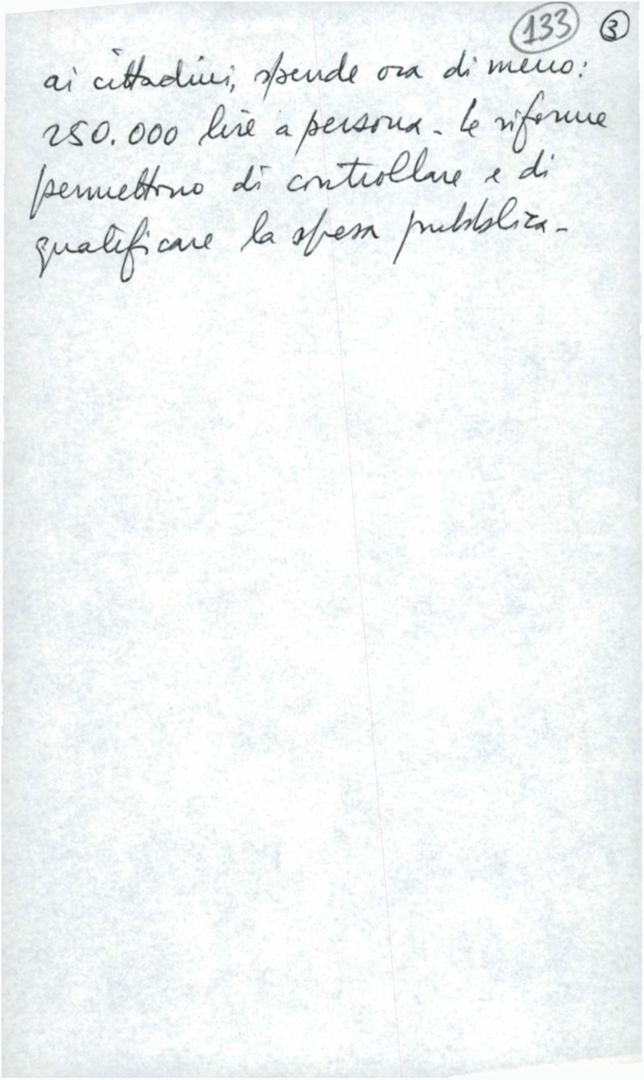 133 3
ai cittadini, spende ora di meno:
250.000 lire a persona - Le riforme
permettono di controllare e di
qualificare la spesa pubblica -